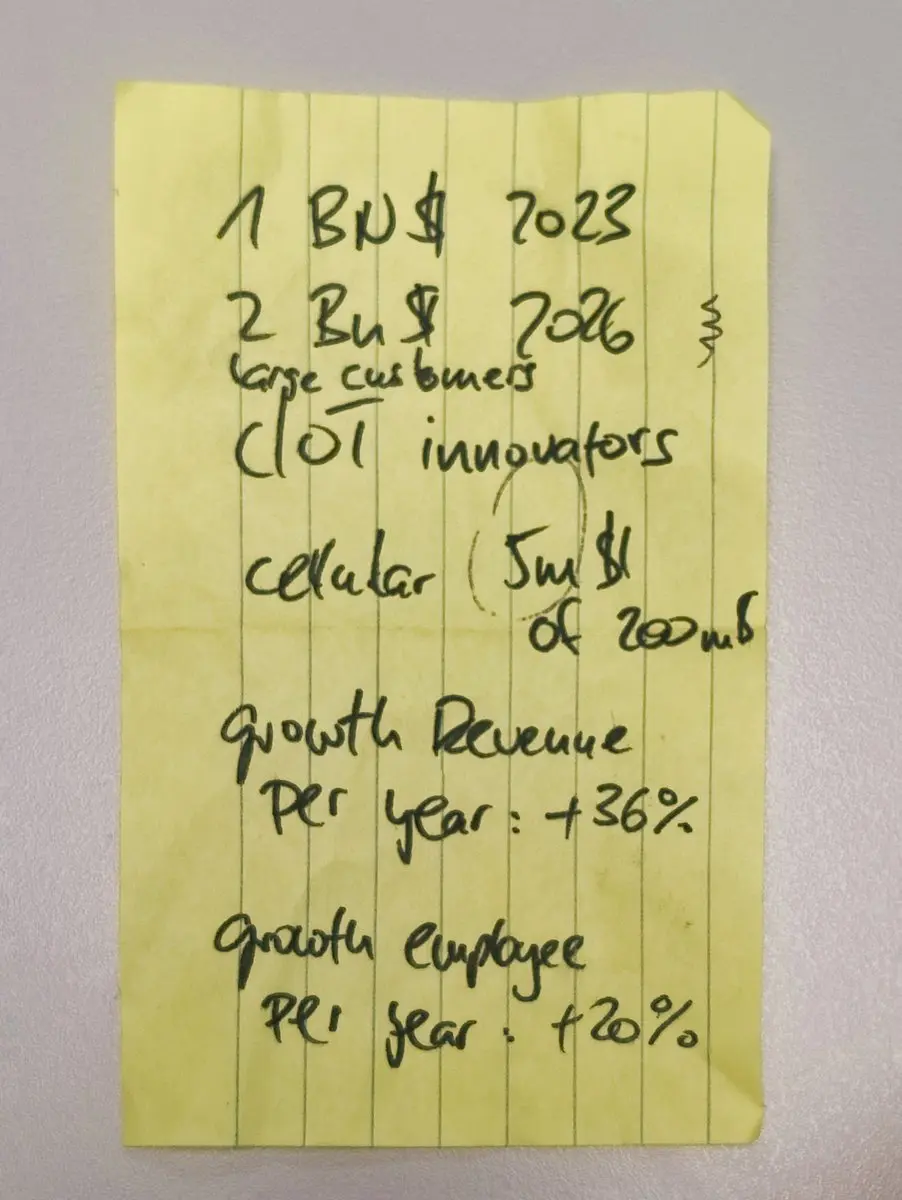 1 BN $ 2023
2 Bn $ 2026
large customers
CIOT innovators
cellular 5m $
of 200m$
growth Revenue
per year: +36%
growth employee
per year: +20%